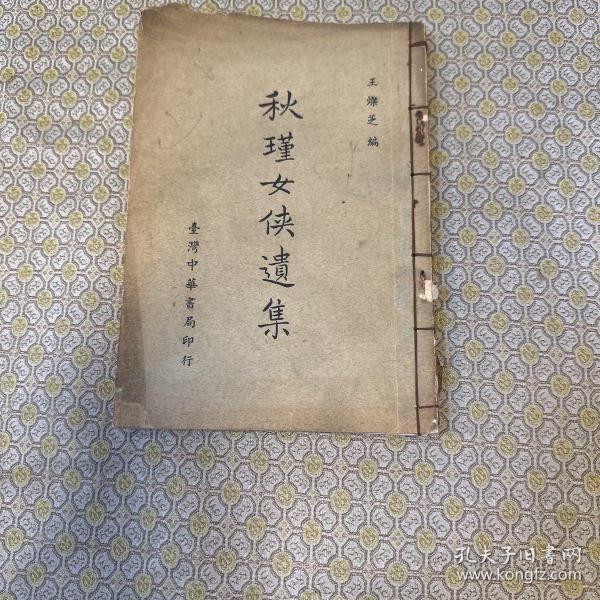 王燦芝編
秋瑾女俠遺集
臺灣中華書局印行
孔夫子旧书网
www.kongfz.com